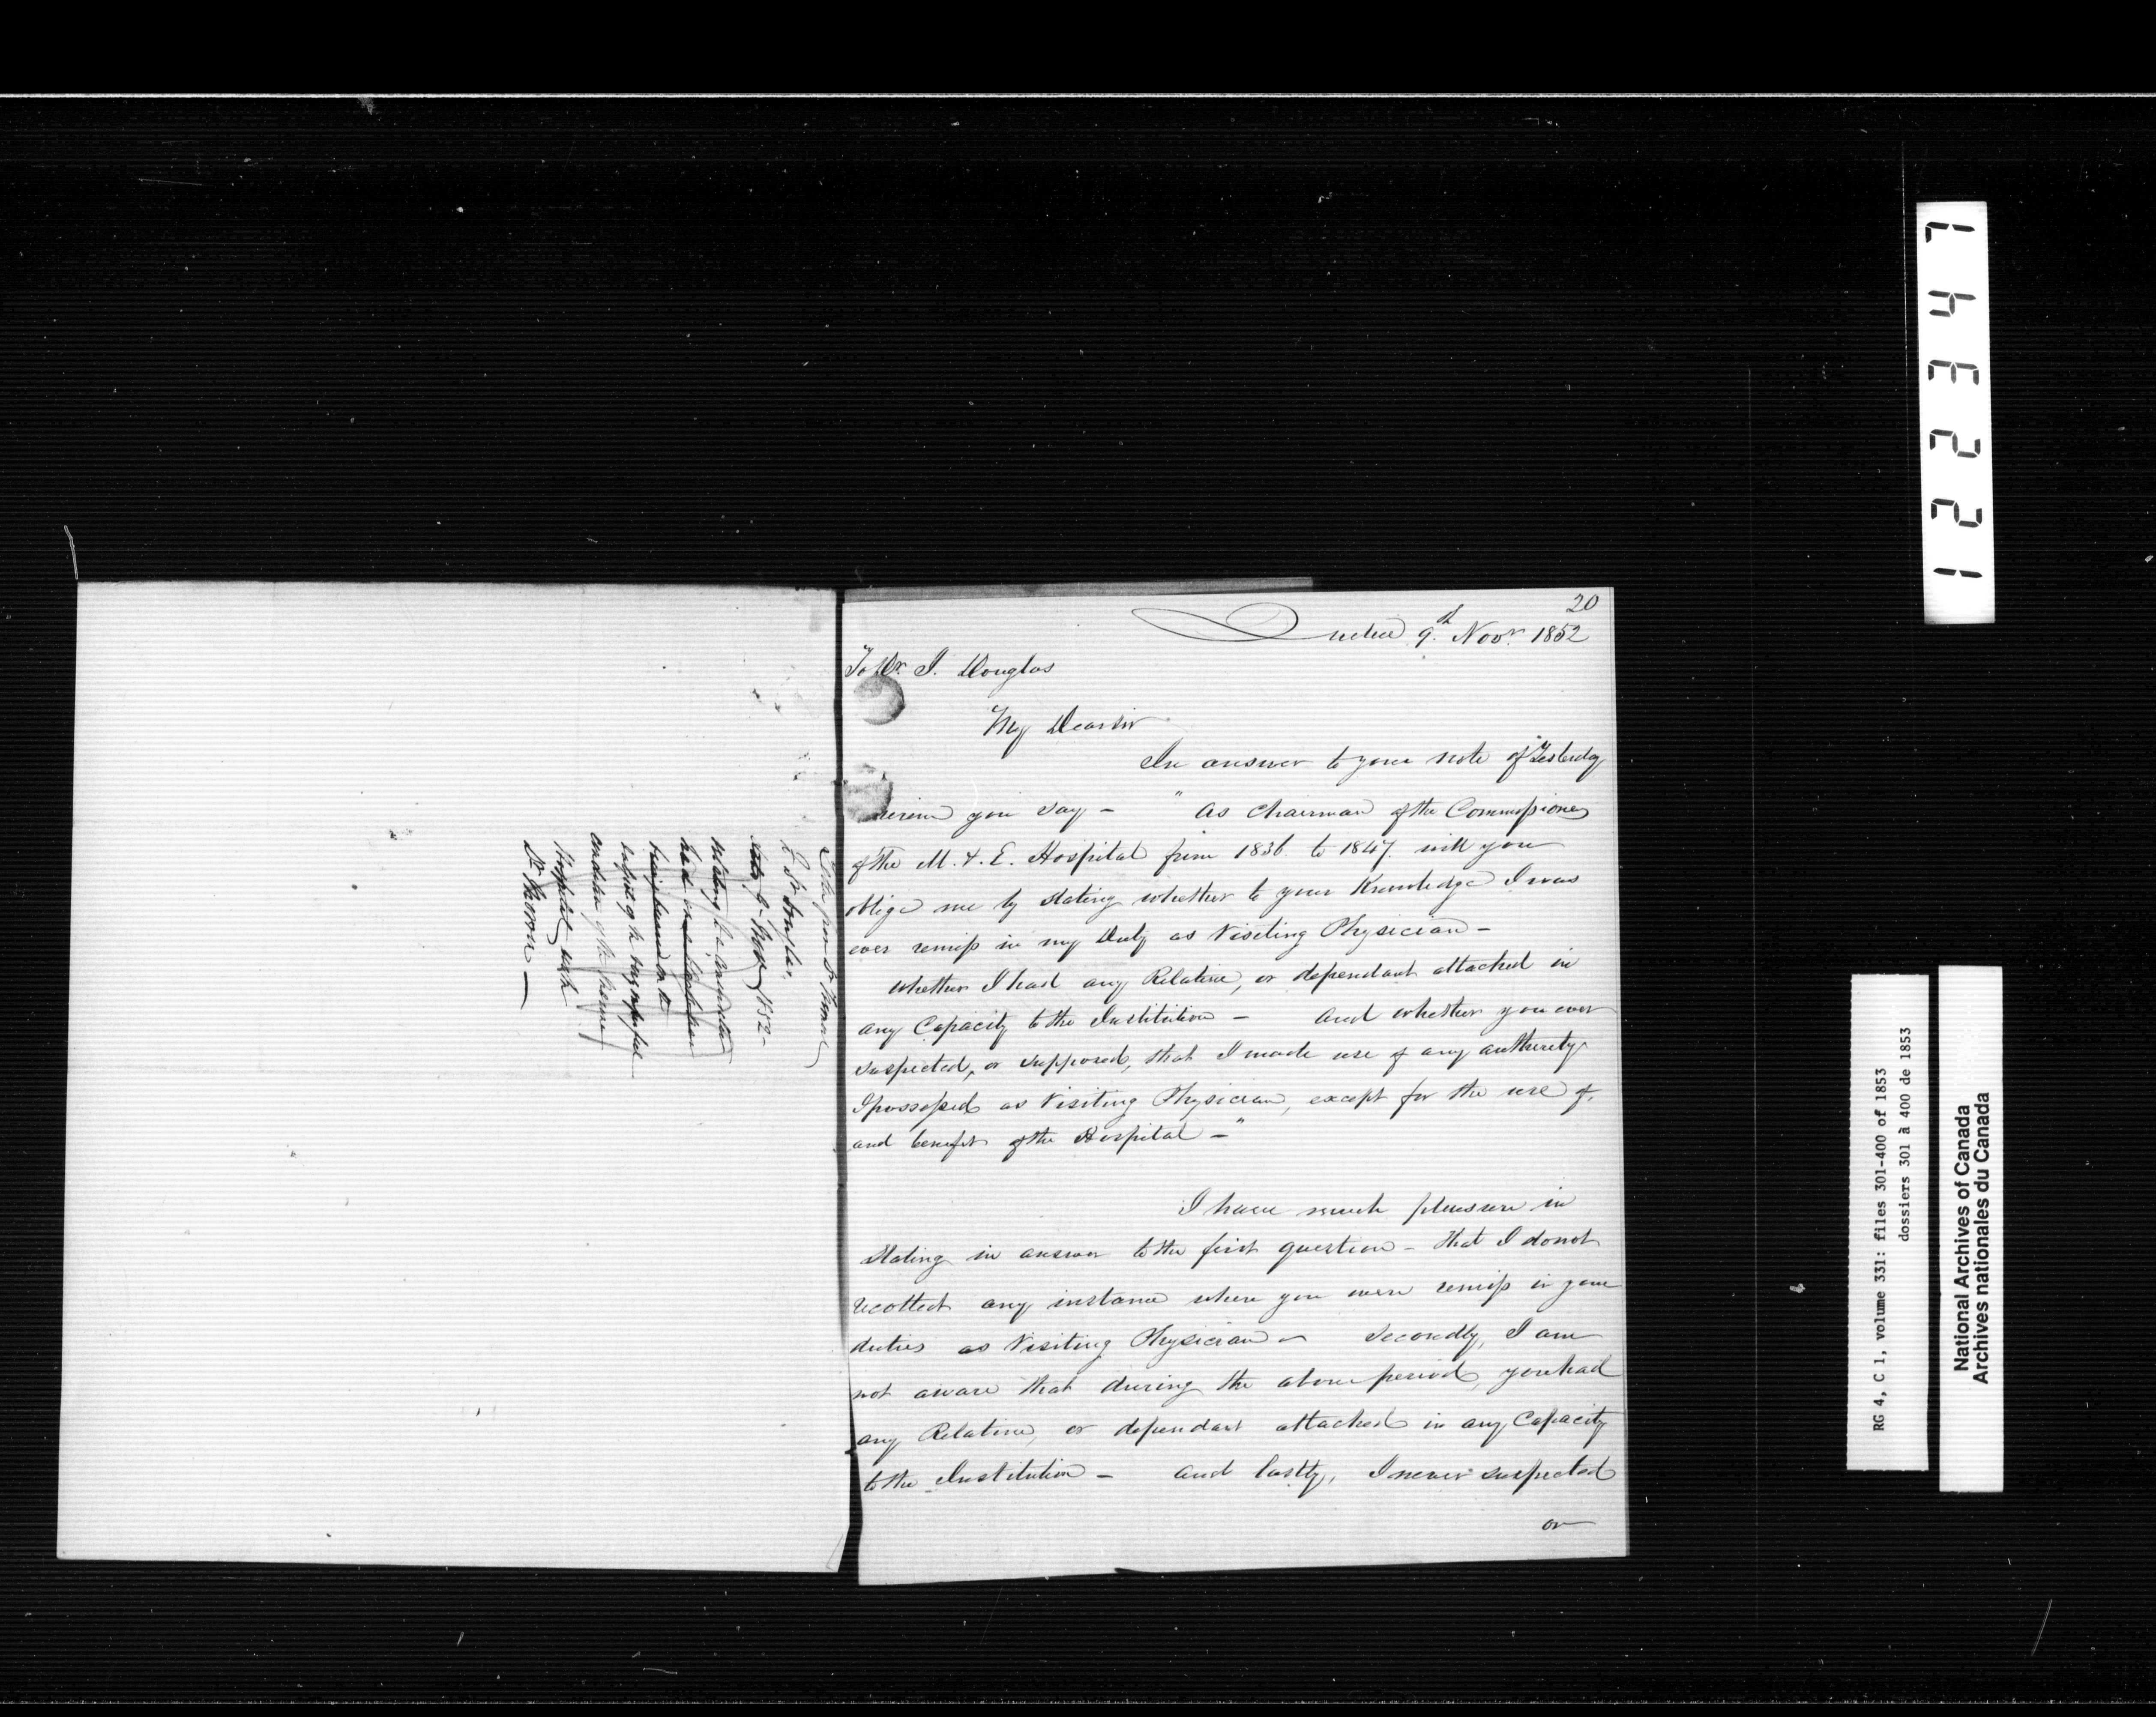 20
Quebec 9th Novr. 1852
To Dr. J. Douglas
My Dear Sir
In answer to your note of Yesterday
wherein you say - " As Chairman of the Commissioners
of the M. & E. Hospital from 1836 to 1847 will you
oblige me by stating whether to your Knowledge I was
ever remiss in my Duty as Visiting Physician -
Whether I had any Relative, or dependant attached in
any Capacity to the Institution - And whether you ever
suspected, or supposed, that I made use of any authority
I possessed as Visiting Physician, except for the use of,
and benefit of the Hospital - "
I have much pleasure in
Stating in answer to the first question - that I do not
recollect any instance where you were remiss in your
duties as Visiting Physician - Secondly, I am
not aware that during the above period, you had
any Relative, or dependant attached in any Capacity
to the Institution - And lastly, I never suspected
or
Letter from Dr.
to Dr. Douglas,
9 Novr 1852 -
relating to
had
respect of the
condition of the
Hospital with
Dr.
1 2 2 3 4 7
RG 4, C 1, volume 331: files 301-400 of 1853
dossiers 301 à 400 de 1853
National Archives of Canada
Archives nationales du Canada